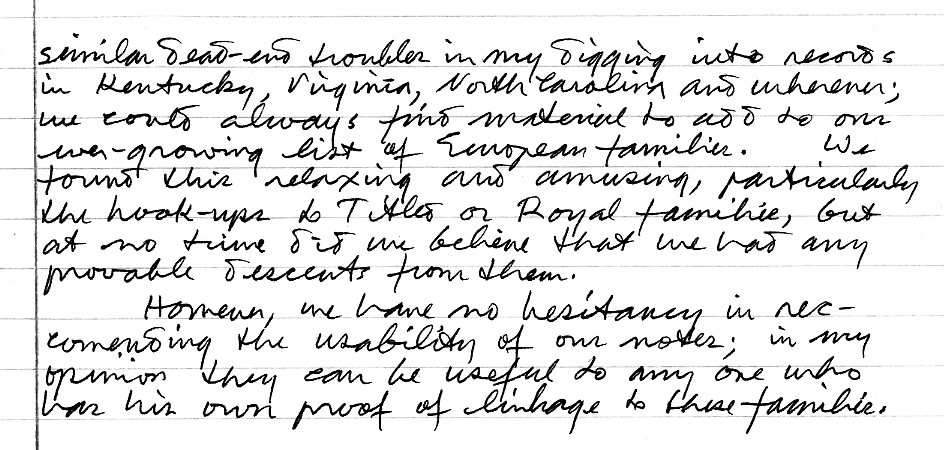 similar dead-end troubles in my digging into records
in Kentucky, Virginia, North Carolina and wherever;
we could always find material to add to our
ever-growing list of European families. We
found this relaxing and amusing, particularly
the hook-ups to Titled or Royal families, but
at no time did we believe that we had any
provable descents from them.
However, we have no hesitancy in rec-
comending the usability of our notes; in my
opinion they can be useful to any one who
has his own proof of linkage to these families.